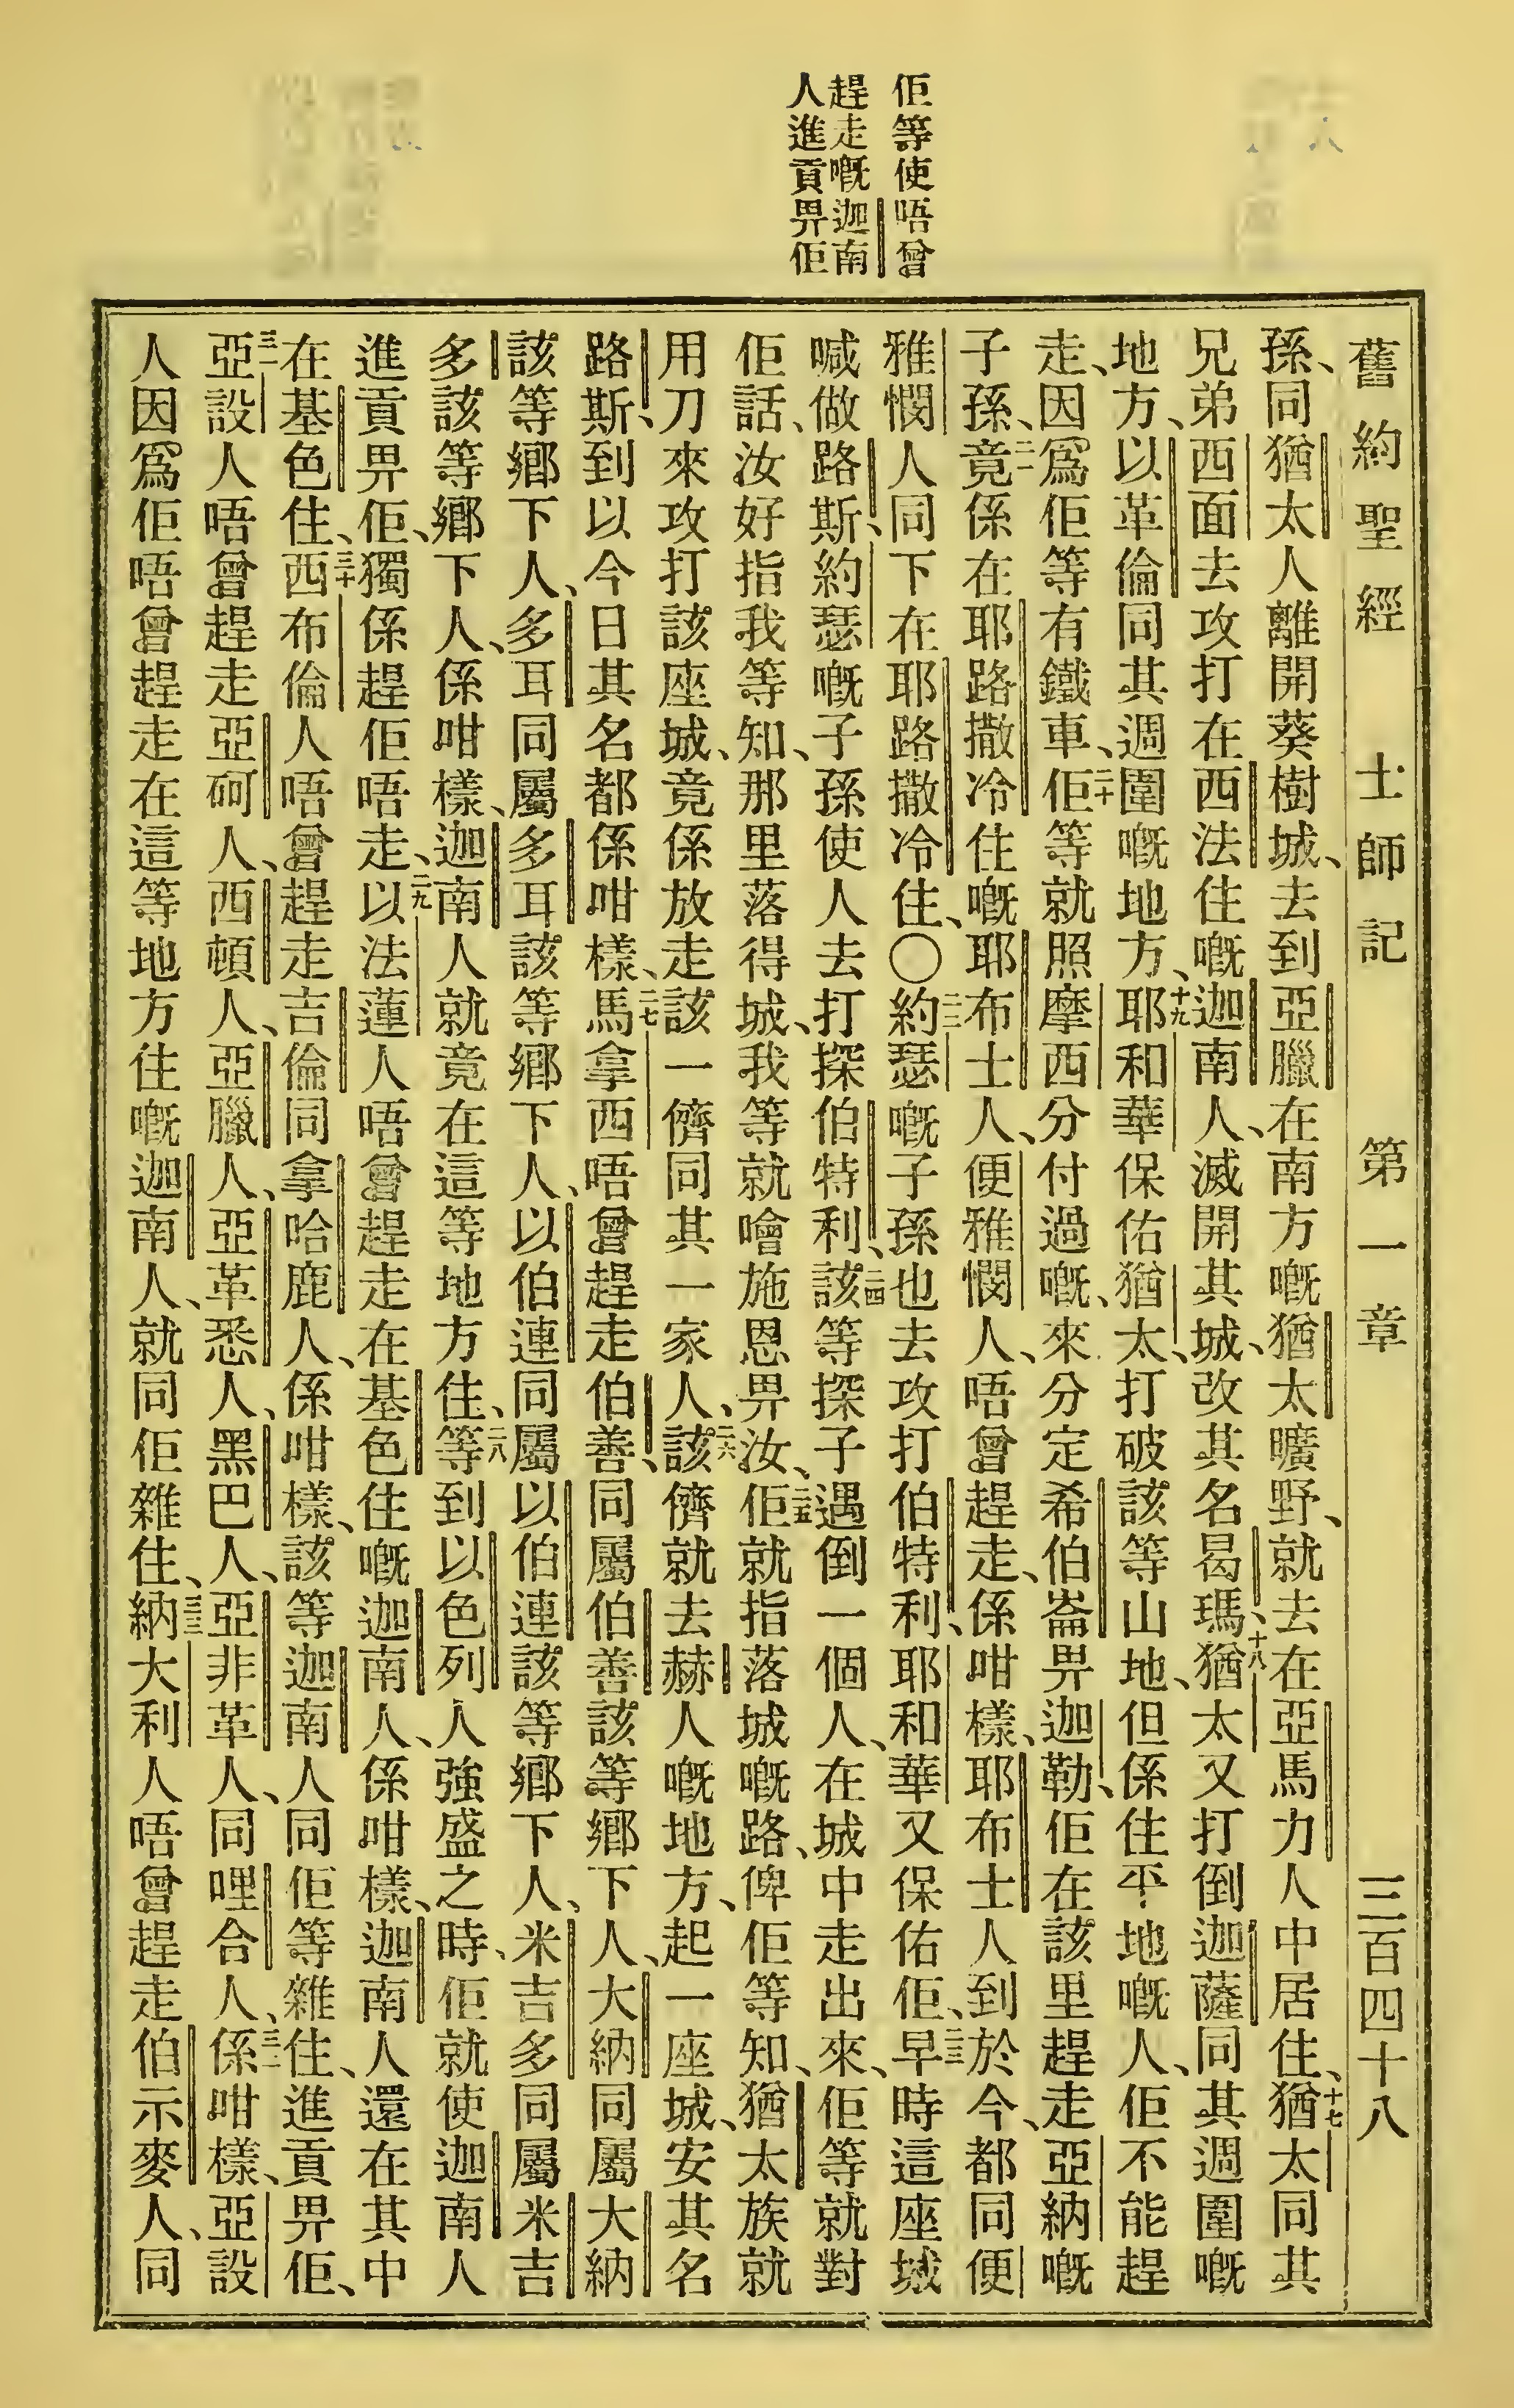 佢等使唔曾
趕走嘅迦南
人進貢畀佢
舊約聖經 士師記 第一章 三百四十八
孫、同猶太人離開葵樹城、去到亞臘在南方嘅猶太曠野、就去在亞馬力人中居住、十七猶太同其
兄弟西面去攻打在西法住嘅迦南人、滅開其城、改其名曷瑪、十八猶太又打倒迦薩同其週圍嘅
地方、以革倫同其週圍嘅地方、十九耶和華保佑猶太、打破該等山地、但係住平地嘅人、佢不能趕
走、因爲佢等有鐵車、二十佢等就照摩西分付過嘅、來分定希伯崙畀迦勒、佢在該里趕走亞納嘅
子孫、二一竟係在耶路撒冷住嘅耶布士人、便雅憫人、唔曾趕走、係咁樣、耶布士人到於今、都同便
雅憫人同下在耶路撒冷住、〇二二約瑟嘅子孫也去攻打伯特利、耶和華又保佑佢、二三早時這座城
喊做路斯、約瑟嘅子孫使人去打探伯特利、二四該等探子遇倒一個人、在城中走出來、佢等就對
佢話、汝好指我等知、那里落得城、我等就噲施恩畀汝、二五佢就指落城嘅路、俾佢等知、猶太族就
用刀來攻打該座城、竟係放走該一儕同其一家人、二六該儕就去赫人嘅地方、起一座城、安其名
路斯、到以今日其名都係咁樣、二七馬拿西唔曾趕走伯善、同屬伯善該等鄉下人、大納同屬大納
該等鄉下人、多耳同屬多耳該等鄉下人、以伯連同屬以伯連該等鄉下人、米吉多同屬米吉
多該等鄉下人、係咁樣、迦南人就竟在這等地方住、二八等到以色列人強盛之時、佢就使迦南人
進貢畀佢、獨係趕佢唔走、二九以法蓮人唔曾趕走在基色住嘅迦南人、係咁樣、迦南人還在其中
在基色住、三十西布倫人唔曾趕走吉倫同拿哈鹿人、係咁樣、該等迦南人同佢等雜住、進貢畀佢、
三一亞設人唔曾趕走亞砢人、西頓人、亞臘人、亞革悉人、黑巴人、亞非革人、同哩合人、三二係咁樣、亞設
人因爲佢唔曾趕走在這等地方住嘅迦南人、就同佢雜住、三三納大利人唔曾趕走伯示麥人、同